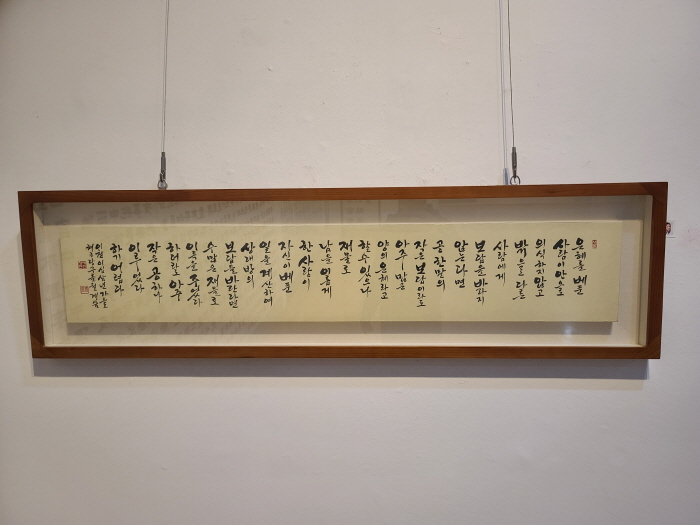 은혜를 베푼
사람이 안으로
의식하지 않고
밖으로 다른
사람에게
보답을 바라지
않는다면
콩 한말의
작은 보답이라도
아주 많은
양의 은혜라고
할수 있으나
재물로
남을 이롭게
한 사람이
자신이 베푼
일을 계산하여
상대방의
보답을 바란다면
수많은 재물로
주었다
하더라도 아주
작은 공 하나
이루었다
하기 어렵다